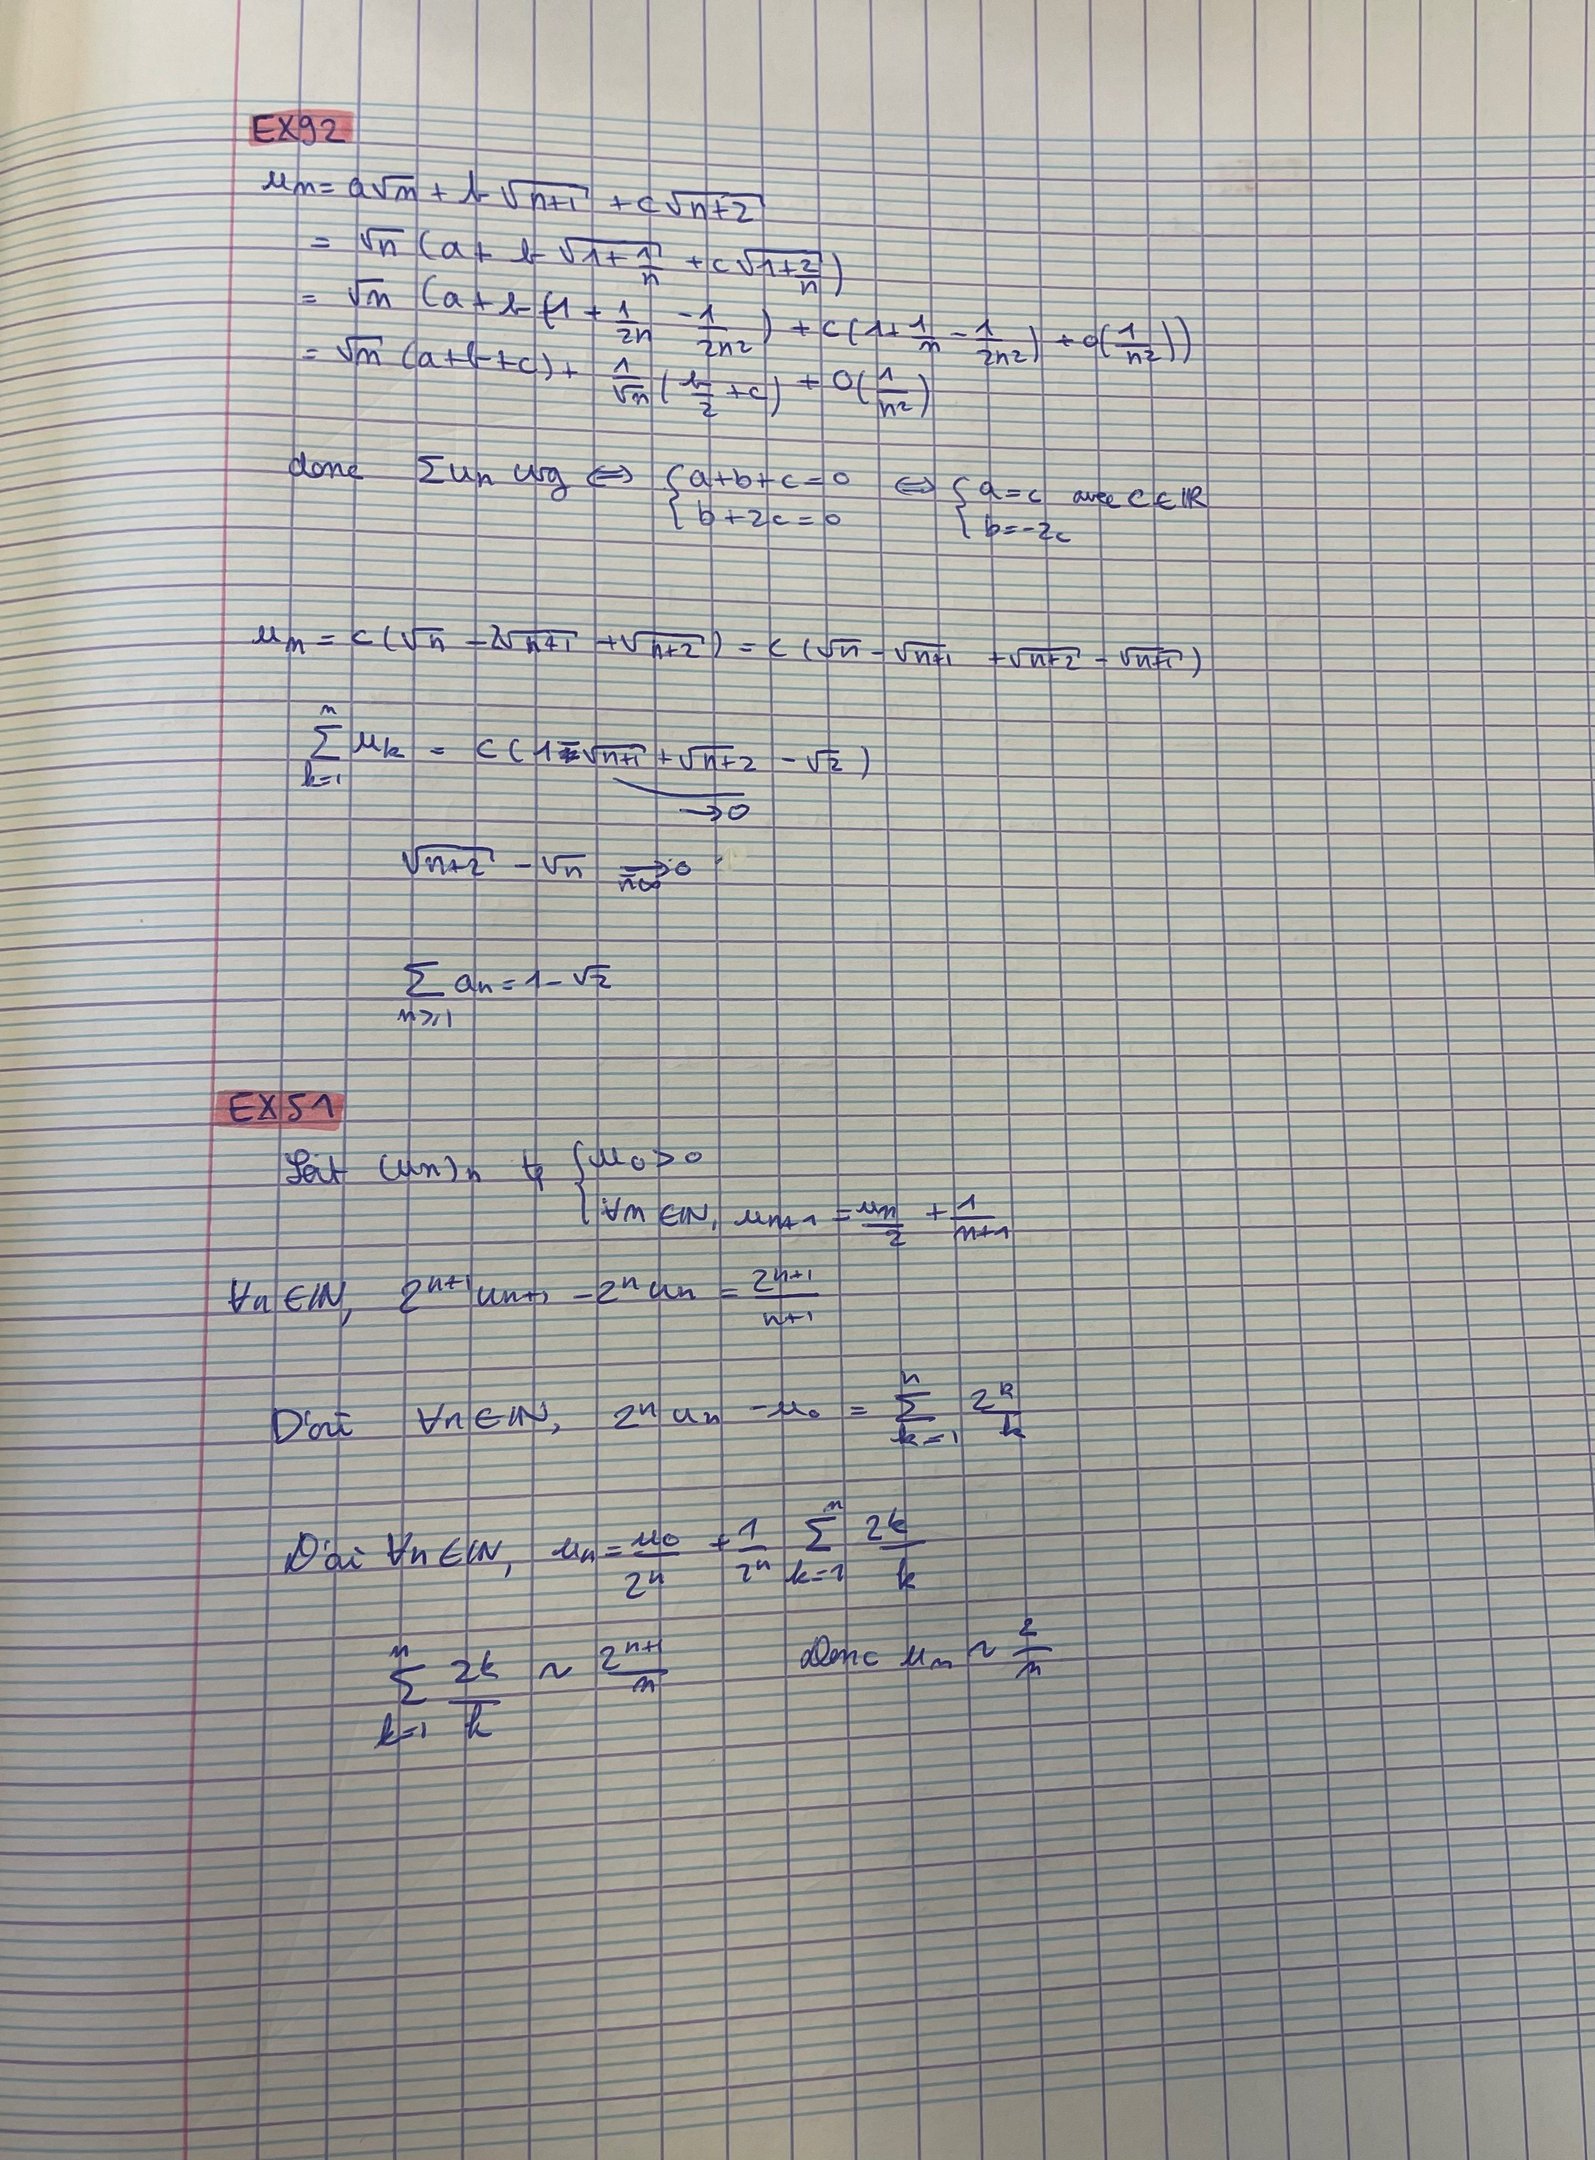 EX92
un = a√n + b√(n+1) + c√(n+2)
= √n (a + b√(1+1/n) + c√(1+2/n))
= √n (a + b(1 + 1/2n - 1/2n²) + c(1 + 1/n - 1/2n²) + o(1/n²))
= √n (a+b+c) + 1/√n (b/2 + c) + O(1/n²)
donc Σun cvg ⇔ { a+b+c=0 ⇔ { a=c avec c∈ℝ
{ b+2c=0 { b=-2c
un = c(√n - 2√(n+1) + √(n+2)) = c(√n - √(n+1) + √(n+2) - √(n+1))
Σ_{k=1}^{n} uk = c(1 - √(n+1) + √(n+2) - √2)
→0
√(n+2) - √n →_{n∞} 0
Σ_{n≥1} an = 1 - √2
EX51
Soit (un)n tq { u0>0
{ ∀n∈ℕ, un+1 = un/2 + 1/(n+1)
∀n∈ℕ, 2^{n+1} un+1 - 2^n un = 2^{n+1}/(n+1)
D'où ∀n∈ℕ, 2^n un - u0 = Σ_{k=1}^{n} 2^k/k
D'où ∀n∈ℕ, un = u0/2^n + 1/2^n Σ_{k=1}^{n} 2^k/k
Σ_{k=1}^{n} 2^k/k ~ 2^{n+1}/n Donc un ~ 2/n